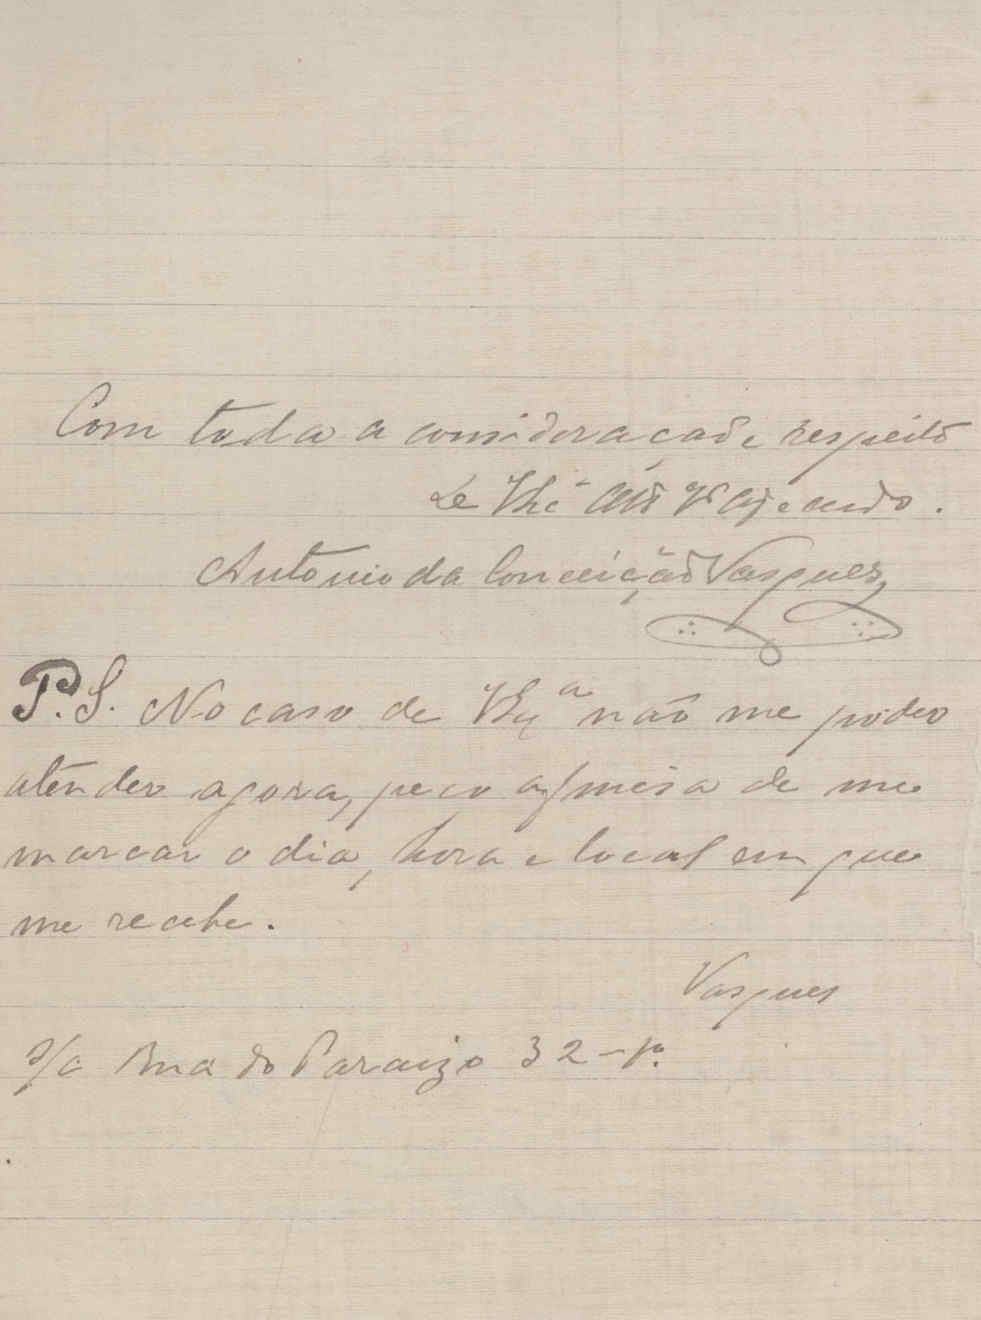 Com toda a consideração e respeito
De V. Exª
Antonio da Conceição Vasques
P.S. No caso de V. Exª não me poder
atender agora, peço a fineza de me
marcar o dia, hora e local em que
me recebe.
Vasques
S/c Rua do Paraizo 32-1º